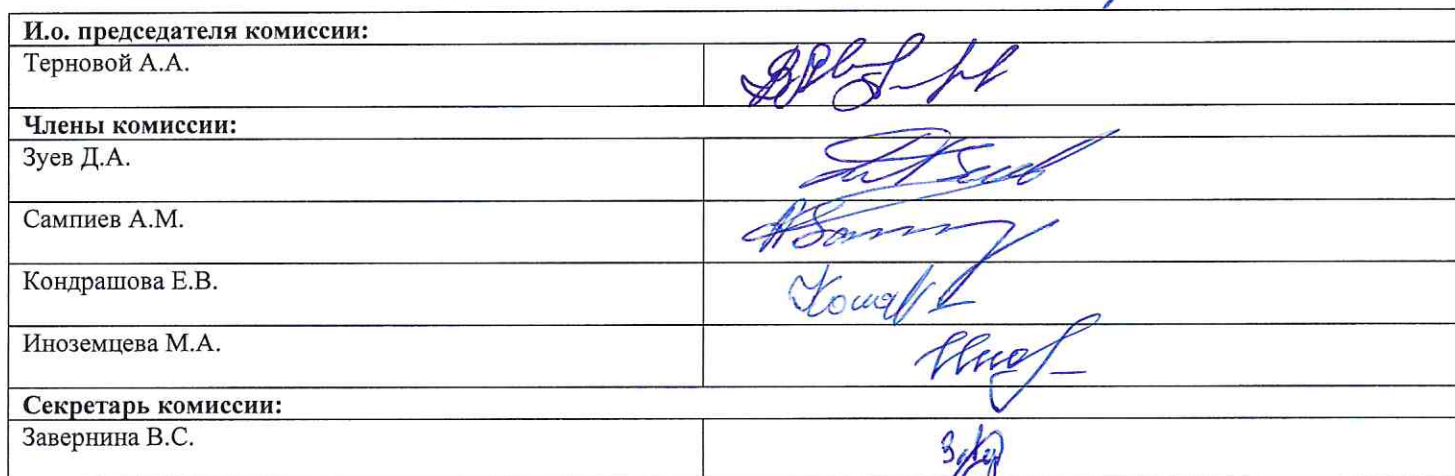 И.о. председателя комиссии:
Терновой А.А.
Члены комиссии:
Зуев Д.А.
Сампиев А.М.
Кондрашова Е.В.
Иноземцева М.А.
Секретарь комиссии:
Завернина В.С.